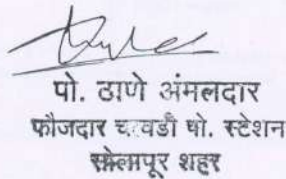 पो. ठाणे अंमलदार
फौजदार चावडी पो. स्टेशन
सोलापूर शहर